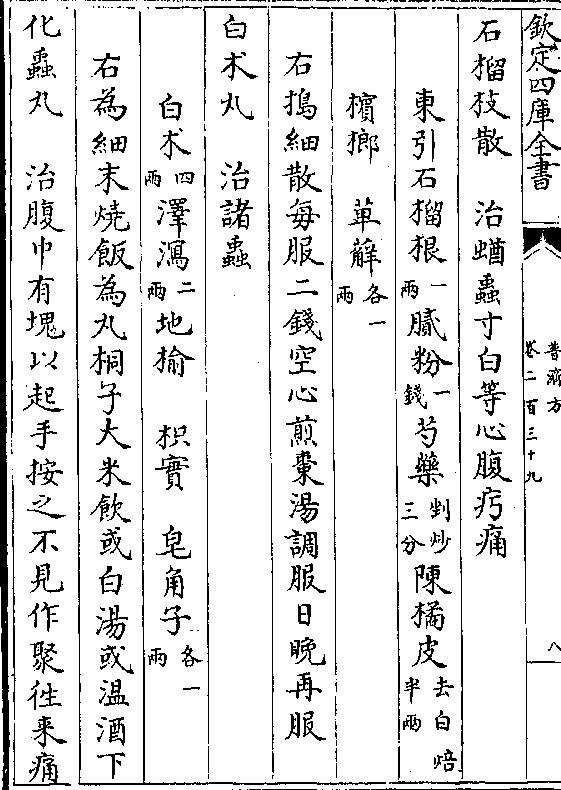 欽定四庫全書
普濟方
卷二百三十九
八
石榴枝散　治蛕蟲寸白等心腹㽲痛
東引石榴根一兩膩粉一錢芍藥剉炒三分陳橘皮去白焙半兩
檳榔　萆薢各一兩
右搗細散每服二錢空心煎棗湯調服日晚再服
白朮丸　治諸蟲
白朮四兩澤瀉二兩地榆　枳實　皂角子各一兩
右為細末燒飯為丸桐子大米飲或白湯或温酒下
化蟲丸　治腹中有塊以起手按之不見作聚徃來痛